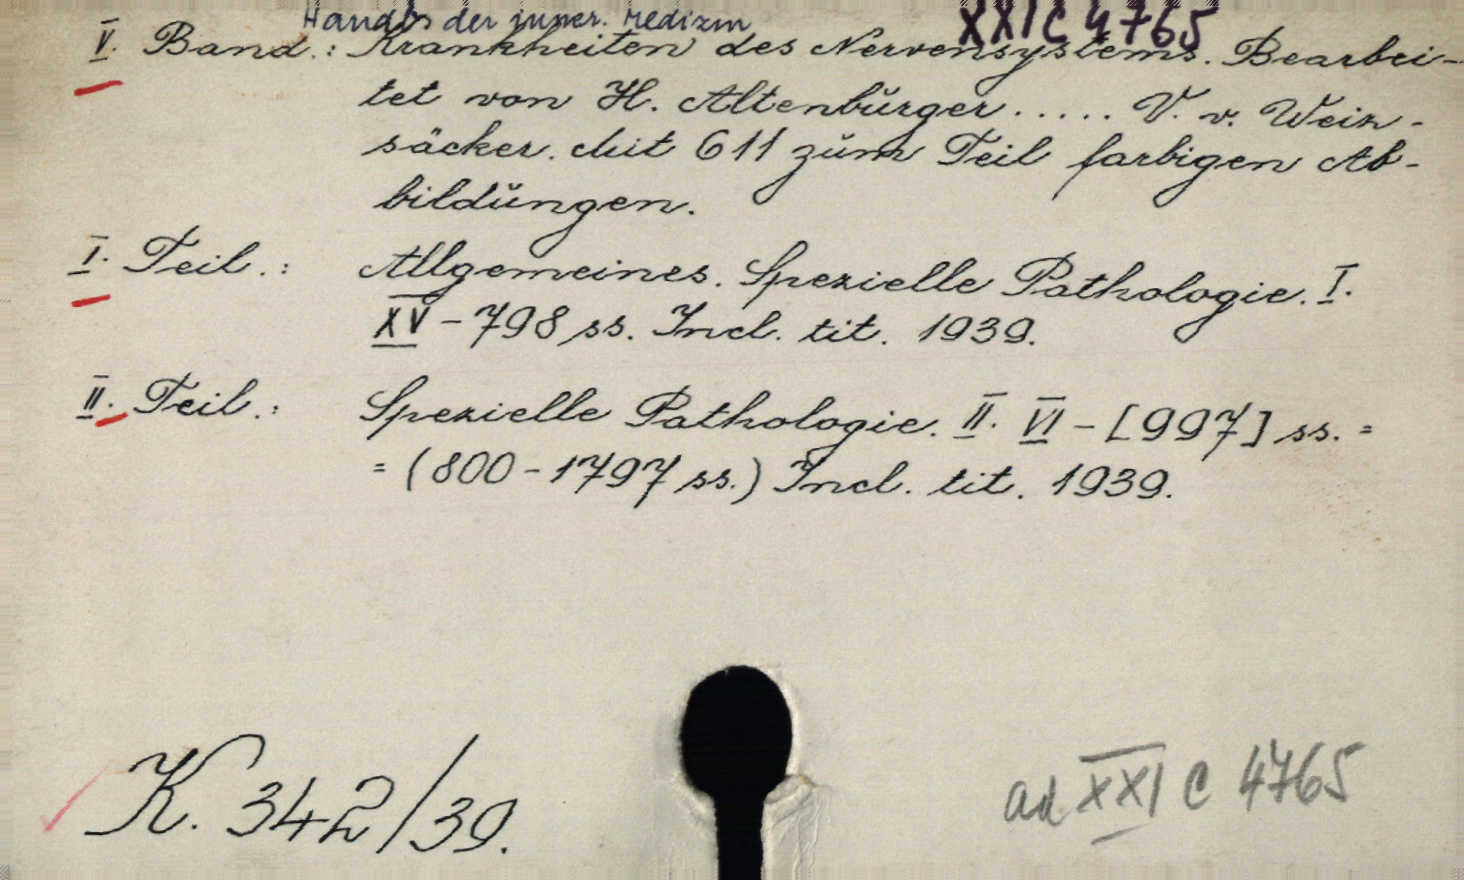 Handb. der inner. Medizin XXI C 4765
V. Band.: Krankheiten des Nervensystems. Bearbei-
tet von H. Altenbŭrger ..... V. v. Weiz-
säcker. Mit 611 zŭm Teil farbigen Ab-
bildŭngen.
I. Teil.: Allgemeines. Spezielle Pathologie. I.
XV - 798 ss. Incl. tit. 1939.
II. Teil.: Spezielle Pathologie. II. VI - [997] ss. =
= (800 - 1797 ss.) Incl. tit. 1939.
K. 342/39.
ad XXI C 4765